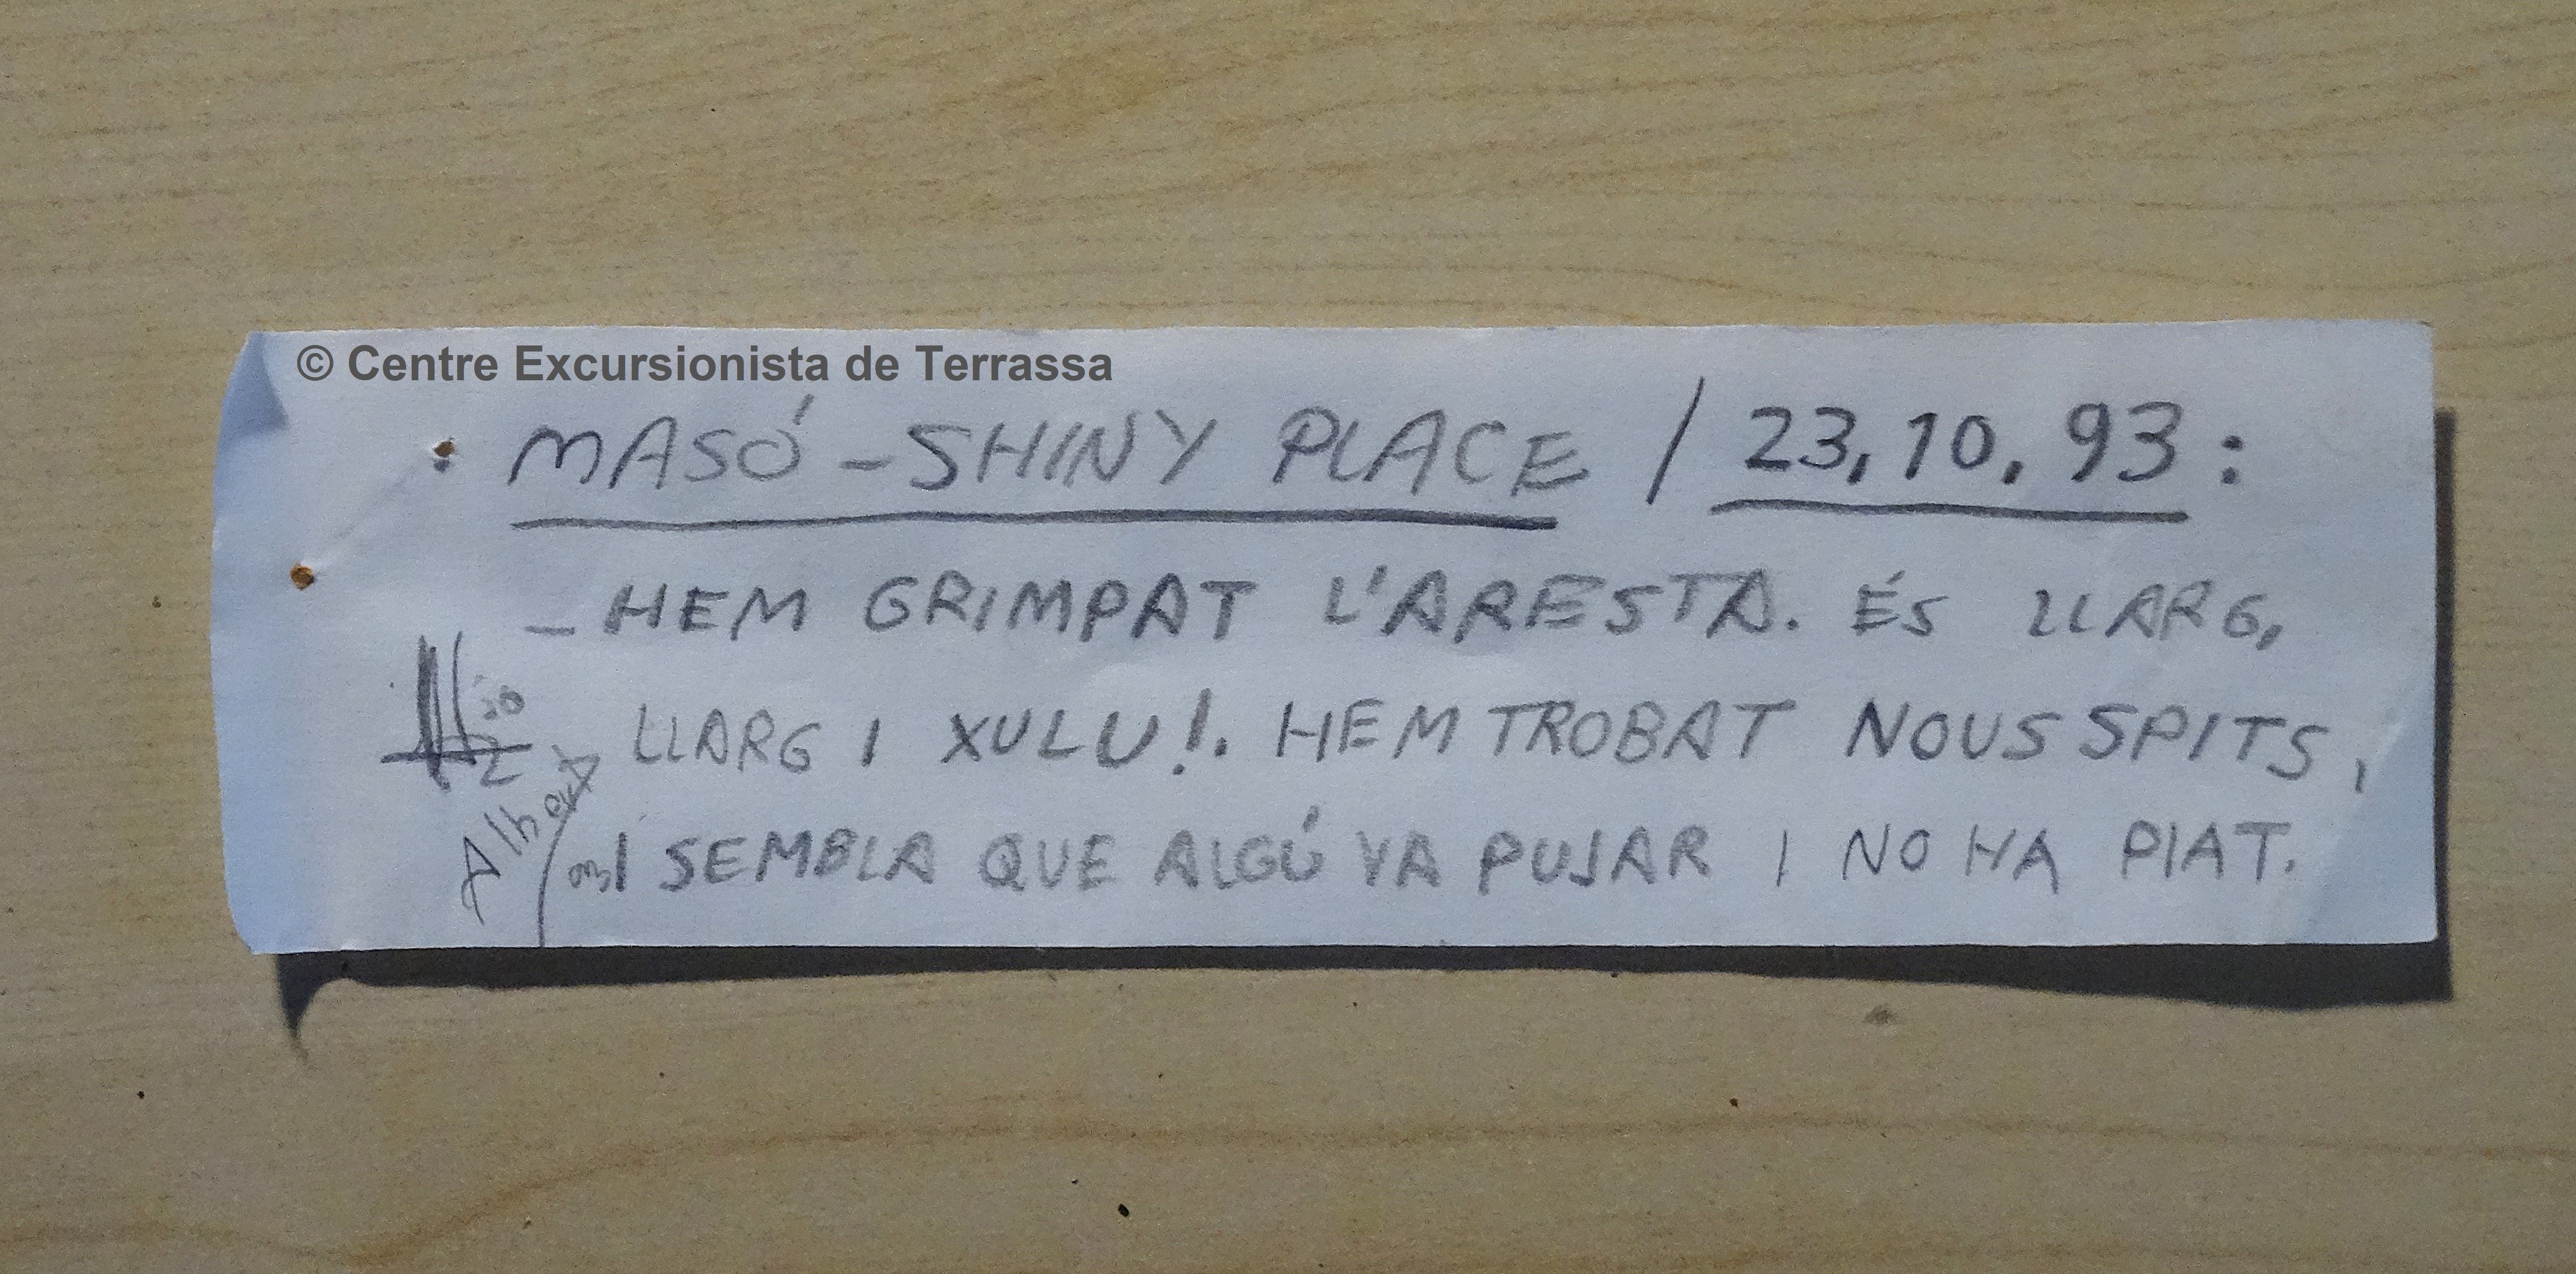 © Centre Excursionista de Terrassa
MASÓ - SHINY PLACE / 23, 10. 93:
- HEM GRIMPAT L'ARESTA. ÉS LLARG,
LLARG I XULU!. HEM TROBAT NOUS SPITS,
I SEMBLA QUE ALGÚ VA PUJAR I NO HA PIAT.
Albert